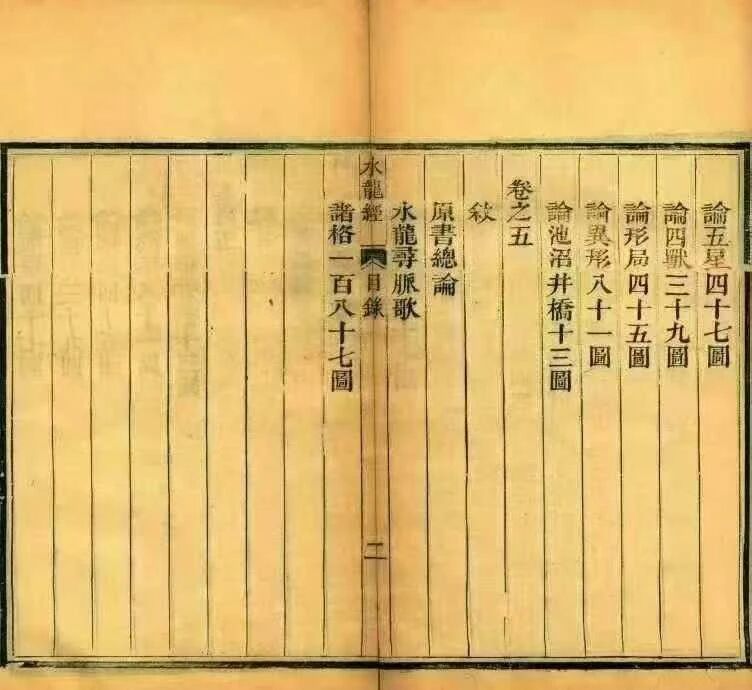 論五星四十七圖
論四獸三十九圖
論形局四十五圖
論異形八十一圖
論池沼井橋十三圖
卷之五
敘
原書總論
水龍尋脈歌
水龍經 目錄 二
諸格一百八十七圖